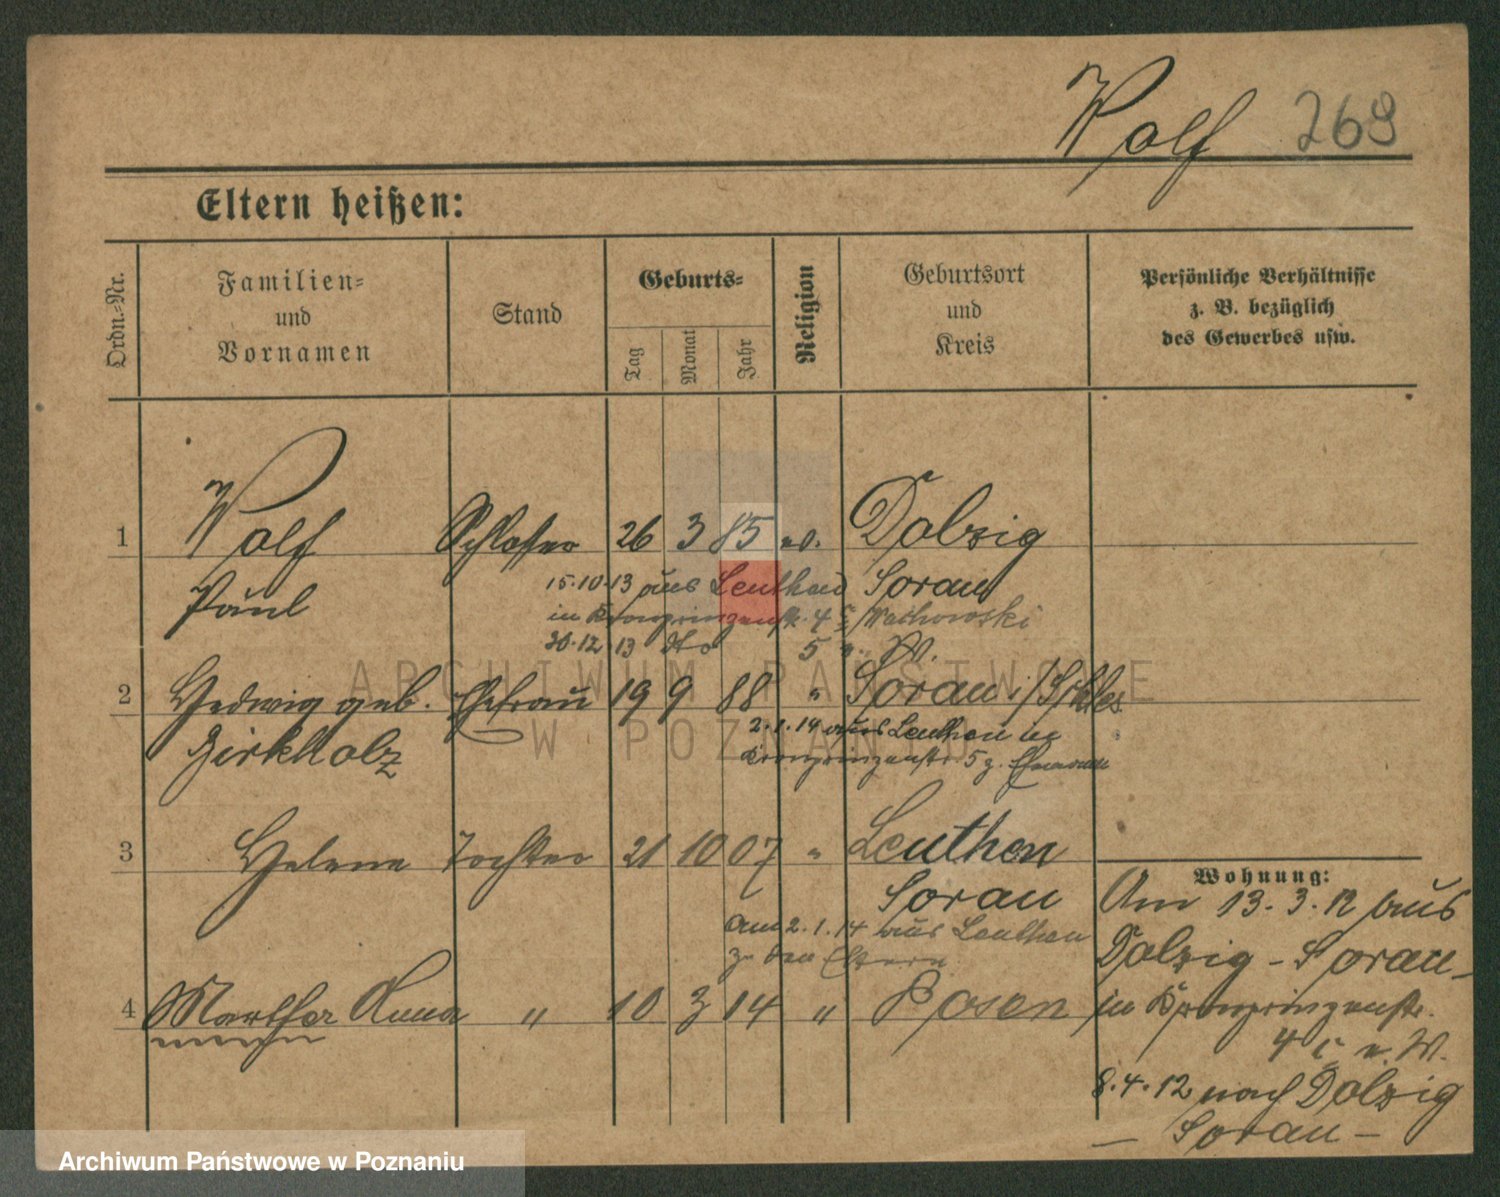 Wolf 269
Eltern heißen:
Ordn.-Nr.
Familien-
und
Vornamen
Stand
Geburts-
Tag
Monat
Jahr
Religion
Geburtsort
und
Kreis
Persönliche Verhältnisse
z. B. bezüglich
des Gewerbes usw.
1 Wolf Schlosser 26 3 85 ev. Dolzig
Paul 15.10.13 aus Leuthen Sorau
in Kronprinzenstr. 4 Wachowski
30.12.13 dto 5 W.
2 Hedwig geb. Ehefrau 19 9 88 " Sorau
Birkholz
2.1.14 aus Leuthen in
Kronprinzenstr. 5 z. Ehemann
3 Helene Tochter 21 10 07 " Leuthen
Sorau
am 2.1.14 aus Leuthen
zu den Eltern
4 Martha Anna " 10 3 14 " Posen
Wohnung:
Am 13.3.12 aus
Dolzig - Sorau -
in Kronprinzenstr.
4 b. W.
8.4.12 nach Dolzig
- Sorau -
ARCHIWUM PAŃSTWOWE
W POZNANIU
Archiwum Państwowe w Poznaniu